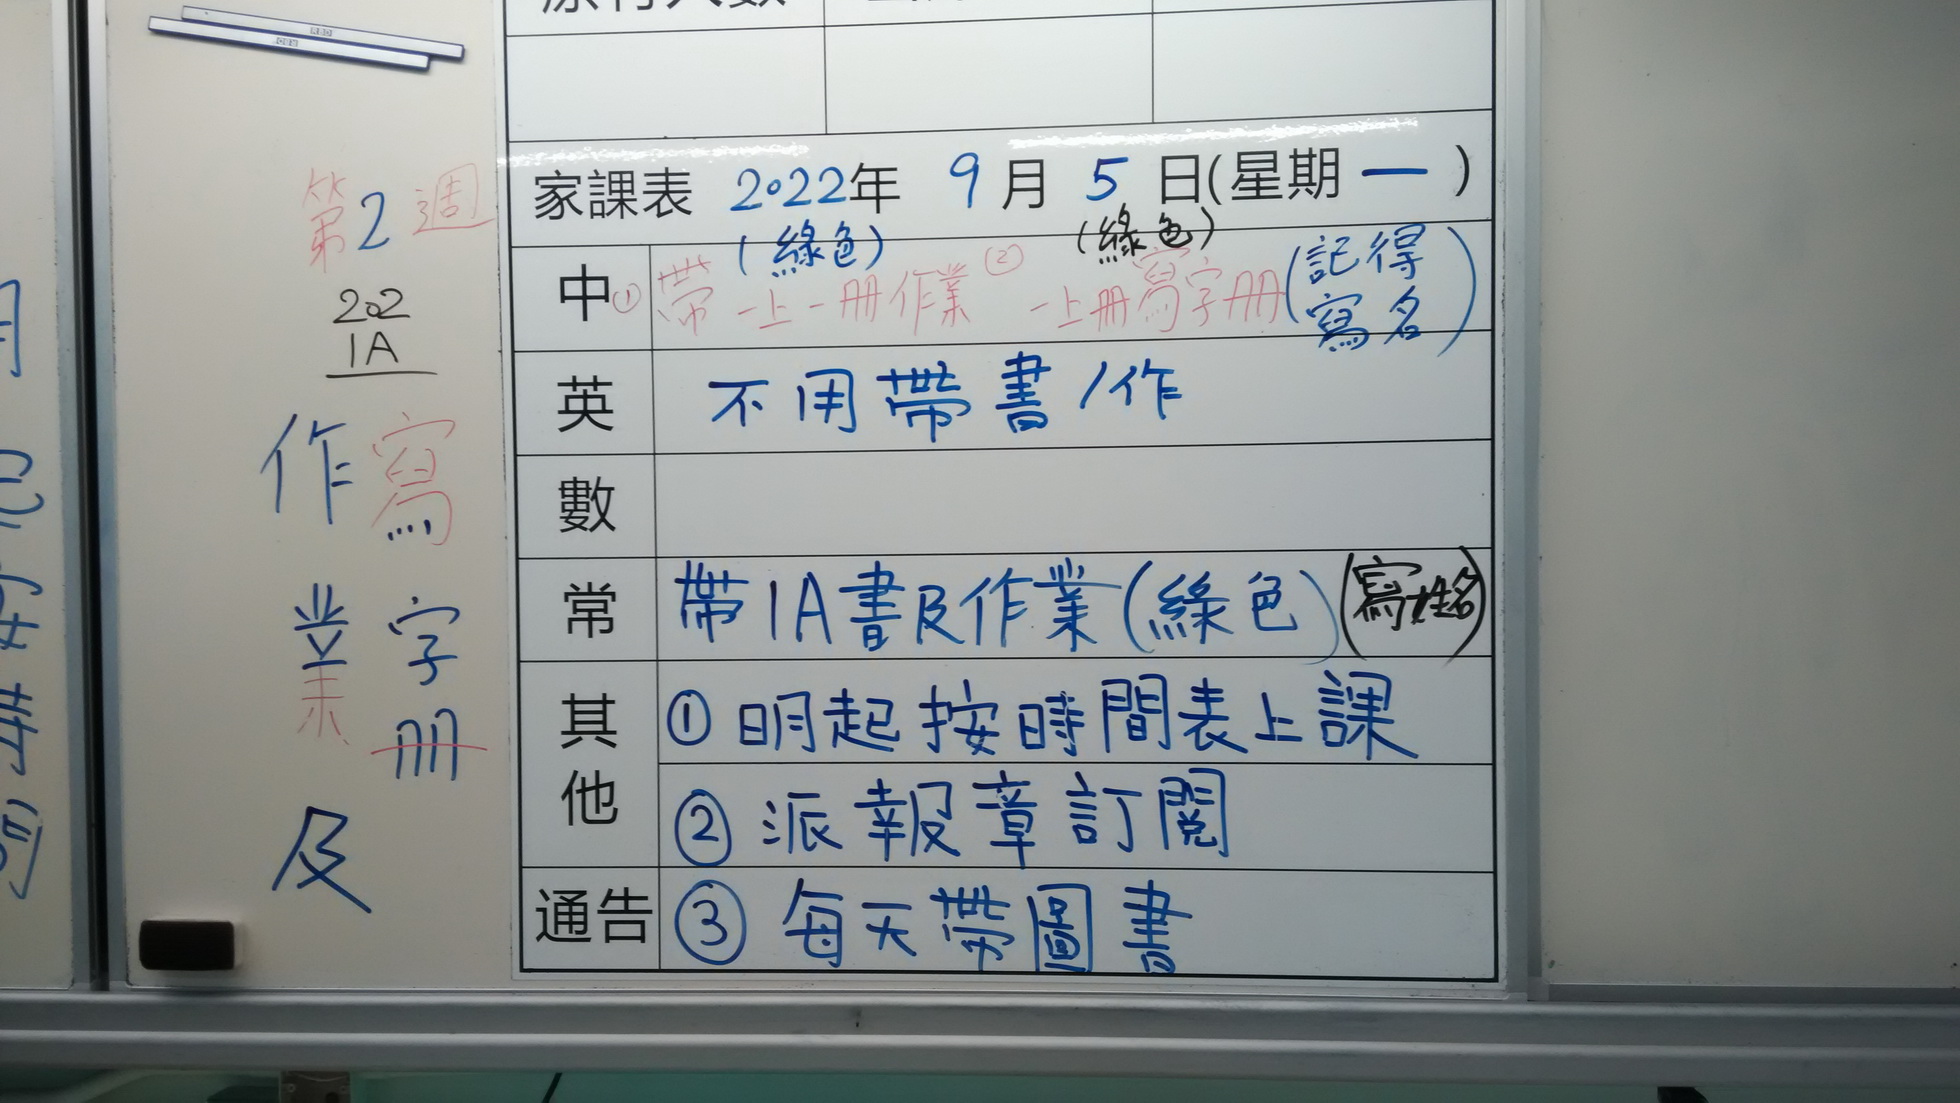 第2週
202
1A
寫字册
作業
及
家課表 2022年 9月5日(星期一)
(綠色) (綠色)
中 ①帶一上一册作業 ②一上册寫字册(記得寫名)
英 不用帶書/作
數
常 帶1A書及作業(綠色)(寫姓名)
其他 ①明起按時間表上課
②派報章訂閱
通告 ③每天帶圖書